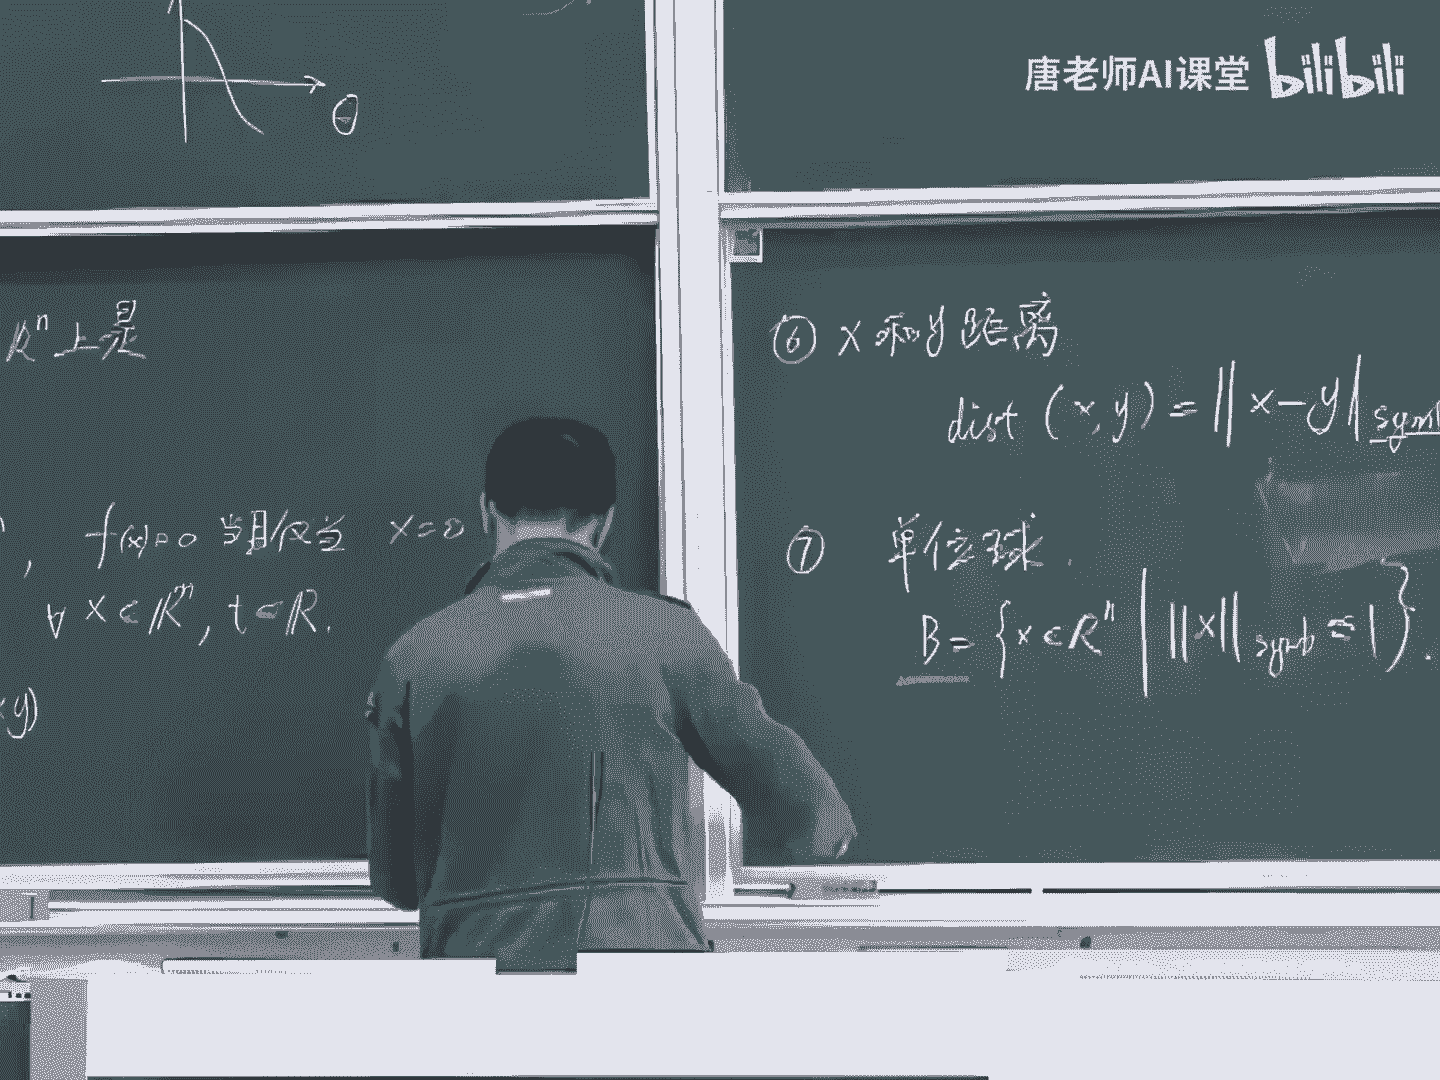 唐老师AI课堂 bilibili
θ
Rⁿ上是
, f(x)=0 当且仅当 x=0
∀ x∈Rⁿ, t∈R.
y)
⑥ x和y距离
dist (x,y) = ‖x-y‖symb
⑦ 单位球.
B= {x∈Rⁿ | ‖x‖symb ≤1}.